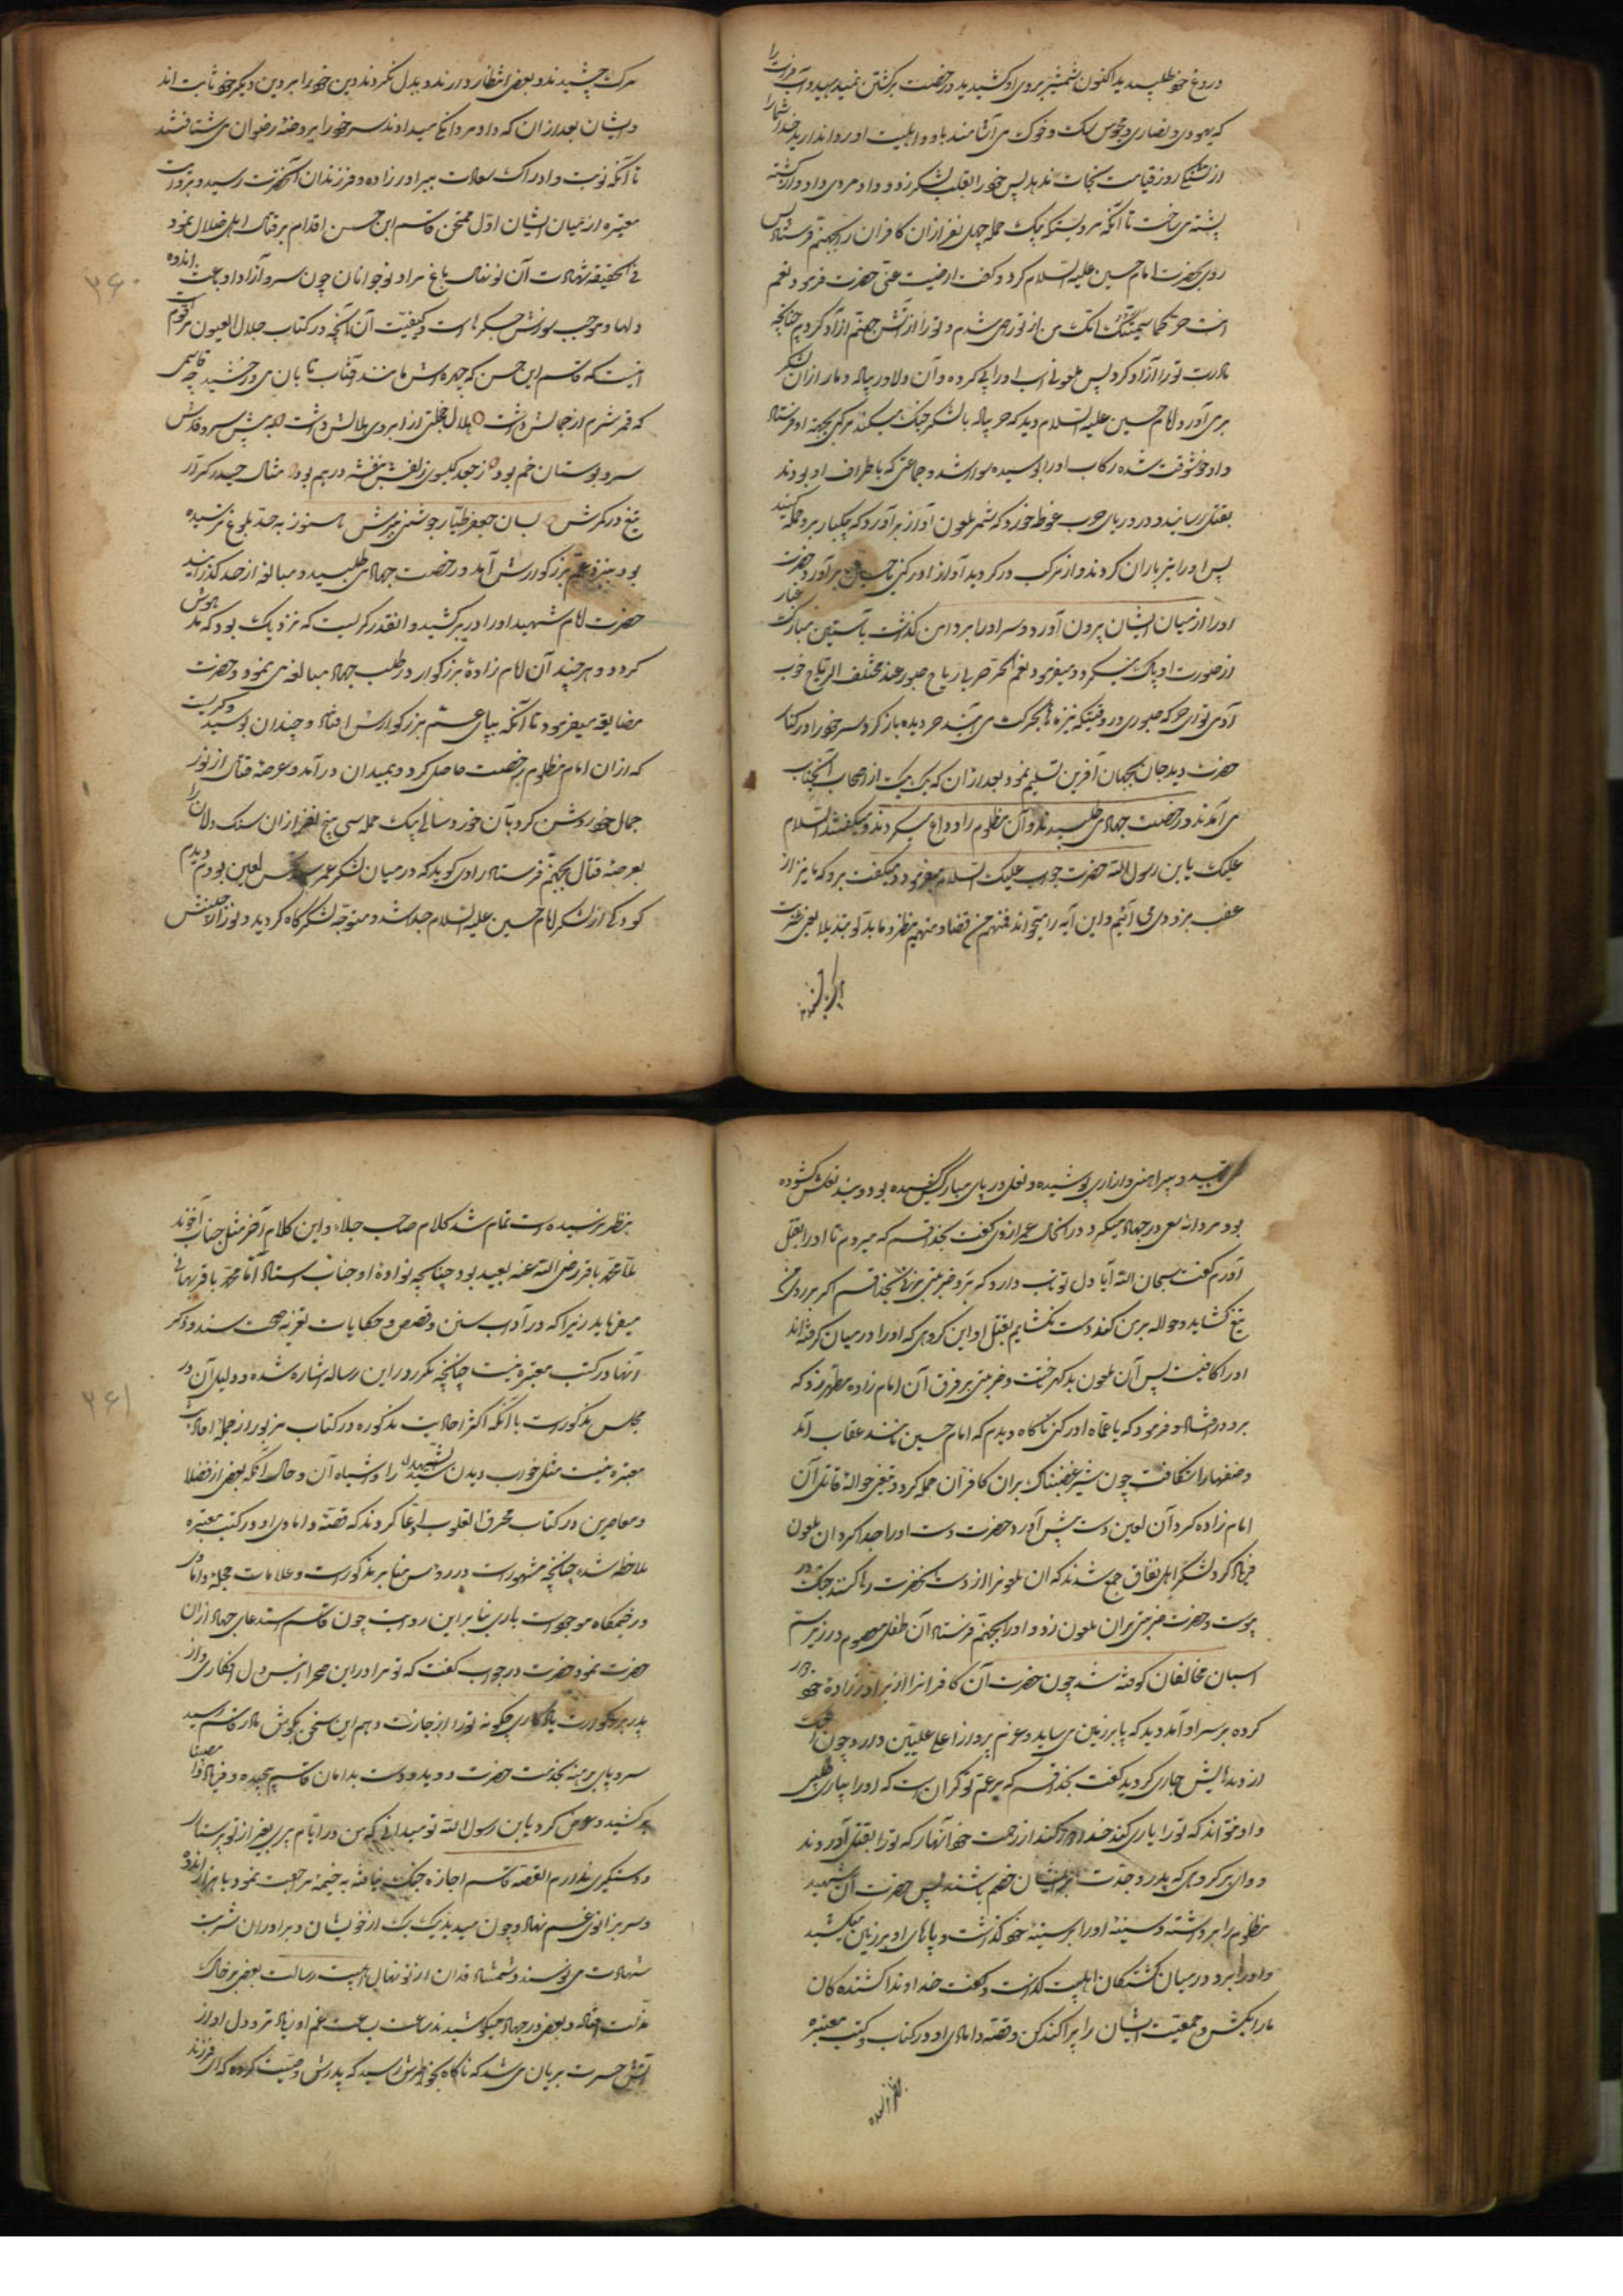 در و غ خو طلبیدید اکنون شمشیر بروی او کشیدید و رخصت برگشتن نمیدهید و آب فرات را
که یهودی و نصاری و مجوس و سک و خوک می آشامند باو و اهلبیت او روا ندارید خدا شما را
از تشنگی روز قیامت نجات ندهد پس خود را بقلب لشکر زد و داد مردی داد و از کشته
پشته می ساخت تا آنکه بیک حمله چهل نفر از آن کافران را بجهنم فرستاد پس
روی بحضرت امام حسین علیه السلام کرد و گفت ارضیت عنی حضرت فرمود نعم
انت حر کما سمتک امک من از تو راضی شدم و تو را از آتش جهنم آزاد کردم چنانچه
مادرت تو را آزاد کرد پس ملعونی اسب او را پی کرده و آن دلاور پیاده دمار از آن لشکر
بر می آورد امام حسین علیه السلام دید که حر پیاده با لشکر جنگ میکند مرکبی بجهة او فرستاد
و او خوشوقت شده رکاب او را بوسیده سوار شد و جماعتی که باطراف او بودند
بقتل رسانید و در دریای حرب غوطه خورد که شمر ملعون آواز برآورد که یکبار بر او حمله کنید
پس او را تیر باران کردند و از مرکب در گردید آواز ادرکنی یا حسین برآورد حضرت
او را از میان ایشان بیرون آورد و سر او را بر دامن گذاشت بآستین مبارک غبار
از صورت او پاک میکرد و میفرمود نعم الحر حر بنی ریاح صبور عند مختلف الرماح خوب
آدمی توای حر که صبوری در وقتیکه نیزه ها بحرکت می آیند حر دیده باز کرد سر خود را در کنار
حضرت دید جان بجهان آفرین تسلیم نمود بعد از آن که یک یک از اصحاب آنجناب
می آمدند و رخصت جهاد می طلبیدند و آن مظلوم را وداع میکردند و میگفتند السلام
علیک یابن رسول الله حضرت جواب علیک السلام میفرمود و میگفت برو که ما نیز از
عقب بزودی می آئیم و این آیه را میخواند فمنهم من قضا و منهم من ینظر و ما بدلوا تبدیلا یعنی بعضی شربت
مرک چشیدند و بعضی انتظار دارند و بدل نکردند دین خود را بر دین دیگر خود ثابت اند
و ایشان بعد از آن که داد مردانگی میدادند سر خود را بروضهٔ رضوان می شتافتند
تا آنکه نوبت و ادراک سعادت ببرادر زاده و فرزندان آنحضرت رسید و بروایت
معتبره از میان ایشان اول ممتحن قاسم ابن حسن اقدام بر قتال اهل ضلال نمود
فی الحقیقه شهادت آن نو نهال باغ مراد نوجوانان چون سرو آزاد او باعث اندوه
دلها و موجب سوزش جگرها است و کیفیت آن آنچه در کتاب جلال العیون مرقوم است
اینست که قاسم ابن حسن که چهره اش مانند آفتاب تابان می درخشید چه قاسمی
که قمر شرم از جمالش داشت هلال خجلتی از ابروی هلالش داشت به پیش سرو قدش
سرو بوستان خم بود ز جعد گیسوی زلفش بنفشه درهم بود مثال حیدر کرار
تیغ در کمرش بسان جعفر طیار جوشنی ببرش هنوز به حد بلوغ نرسیده
بود بنزد عم بزرگوارش آمد و رخصت جهاد می طلبید و مبالغه از حد گذرانید
حضرت امام شهید او را در بر کشید و انقدر گریست که نزدیک بود که مدهوش
گردد و هر چند آن امام زادهٔ بزرگوار در طلب جهاد مبالغه می نمود و حضرت
مضایقه میفرمود تا آنکه بپای عم بزرگوارش افتاد و چندان بوسید و گریست
که از آن امام مظلوم رخصت حاصل کرد و بمیدان درآمد و عرصهٔ قتال از نور
جمال خود روشن کرد بآن خورد سالی بیک حمله سی پنج نفر از آن سنک دلان را
بعرصهٔ قتال بجهنم فرستاد راوی گوید که در میان لشکر عمر سعد لعین بودم دیدم
کودکی از لشکر امام حسین علیه السلام جدا شد و متوجه لشکرگاه گردید و نور از جبینش
۳۶۰
می تابید و پیراهنی و ازاری پوشیده و نعلی در پای مبارکش کشیده بود و بند نعلش گشوده
بود مردانه سعی در جهاد میکرد در آنحال عمر ازدی گفت بخدا قسم که میروم تا او را بقتل
آورم گفت سبحان الله آیا دل تو تاب دارد که بر او ضربتی بزنی بخدا قسم اگر بر روی من
تیغ گشاید و حواله بر من کند دست نگشایم بقتل او این گروهی که او را در میان گرفته اند
او را کافیست پس آن ملعون بد گهر خبث و ضربتی بر فرق آن امام زاده مطهر زد که
بر و در افتاد و فرمود که یا عماه ادرکنی ناگاه دیدم که امام حسین مانند عقاب آمد
و صفها را شکافت چون شیر غضبناک بر آن کافران حمله کرد و تیغی حوالهٔ قاتل آن
امام زاده کرد آن لعین دست پیش آورد حضرت دست او را جدا کرد آن ملعون
فریاد کرد لشکر اهل نفاق جمع شدند که آن ملعون را از دست آنحضرت رها کنند جنگ در
پیوست و حضرت ضربتی بر آن ملعون زد و او را بجهنم فرستاد آن طفل معصوم در زیر سم
اسبان مخالفان کوفته شد چون حضرت آن کافران را از برادر زادهٔ خود دور
کرده بر سر او آمد دید که پا بر زمین می ساید و عزم پرواز اعلی علیین دارد چون اشک
از دیده هایش جاری گردید گفت بخدا قسم که بر عم تو گران است که او را بیاری طلبی
و او نتواند که تو را یاری کند خدا دور کند از رحمت خود آنها را که تو را بقتل آوردند
و وای بر گروهی که پدر و جدت بر ایشان خصم باشند پس حضرت آن شهید
مظلوم را برداشته و سینهٔ او را بر سینهٔ خود گذاشت و پاهای او بر زمین میکشید
و او را برد در میان کشتگان اهلبیت گذاشت و گفت خداوندا کشنده کان
ما را بکش و جمعیت ایشان را پراکنده کن و قصهٔ دامادی او در کتاب و کتب معتبره
بنظر نرسیده است تمام شد کلام صاحب جلاء و این کلام آخر مثل جناب آخوند
ملا محمد باقر رضی الله عنه بعید بود چنانچه نوادهٔ او جناب استاد آقا محمد باقر بهبهانی
میفرماید زیرا که در آداب سنن و قصص و حکایات تعزیه صحت سند و ذکر
آنها در کتب معتبره نیست چنانچه مکرر در این رساله اشاره شده و دلیل آن در
مجلس مذکور است با آنکه اکثر احادیث مذکوره در کتاب مزبور از جمله احادیث
معتبره نیست مثل خواب دیدن شهید را و اشباه آن و حال آنکه بعضی از فضلا
و معاصرین در کتاب محرق القلوب ادعا کردند که قصهٔ دامادی او در کتب معتبره
ملاحظه شده چنانچه مشهور است در رؤس منابر مذکور است و علامات حجله دامادی
در خیمگاه موجود است باری بنا بر این روایت چون قاسم استدعای جهاد از آن
حضرت نمود حضرت در جواب گفت که تو مرا در این صحرا انیس دل افکاری و از
پدر بزرگوارت یادگاری چگونه تو را اجازت دهم این سخن بگوش مادر قاسم رسید
سر و پای برهنه بخدمت حضرت دوید و دست بدامان قاسم پیچیده و فریاد وا مصیبتا
بر کشید و عرض کرد یابن رسول الله تو میدانی که من در ایام پیری بغیر از تو پرستار
و دستگیری ندارم القصه قاسم اجازه جنگ نیافته به خیمه مراجعت نمود با هزار اندوه
و سر بزانوی غم نهاد و چون میدید یک یک از خویشان و برادران شربت
شهادت می نوشند و شمشاد قدان از نو نهال اهلبیت رسالت بعضی بر خاک
مذلت افتاد و بعضی در جهاد میکوشیدند ساعت بساعت غم او زیاد تر و دل او از
آتش حسرت بریان می شد که ناگاه بخواطرش رسید که پدرش وصیت کرده که ای فرزند
۳۶۱